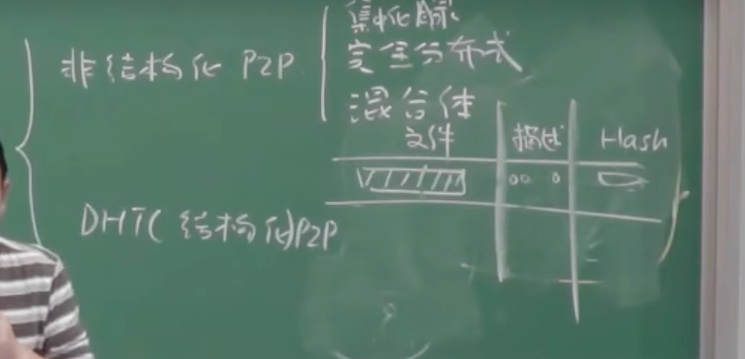 非结构化 P2P
集中化
完全分布式
混合体
文件 描述 Hash
DHT(结构化)P2P